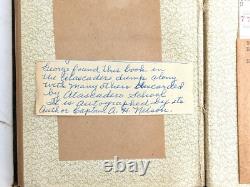 George found this book in
the Atascadero dump along
with many others discarded
by Atascadero School
It is autographed by its
author Captain A. H. Nelson.